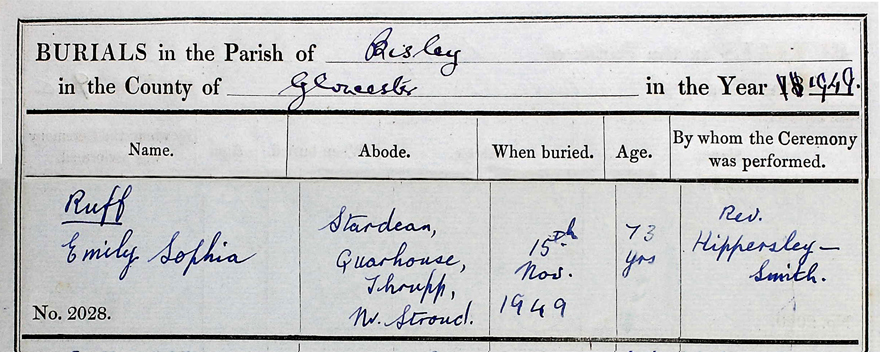 BURIALS in the Parish of Bisley
in the County of Gloucester in the Year 1949.
Name. Abode. When buried. Age. By whom the Ceremony was performed.
Ruff
Emily Sophia
No. 2028.
Stardean,
Quarhouse,
Thrupp,
Nr. Stroud.
15th
Nov.
1949
73
yrs
Rev.
Hippersley-
Smith.